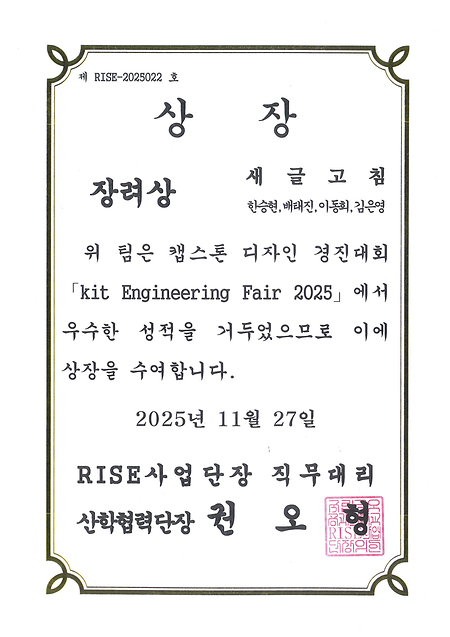 제 RISE-2025022 호
상 장
장려상
새 글 고 침
한승현, 배태진, 이동희, 김은영
위 팀은 캡스톤 디자인 경진대회
「kit Engineering Fair 2025」에서
우수한 성적을 거두었으므로 이에
상장을 수여합니다.
2025년 11월 27일
RISE사업단장 직무대리
산학협력단장 권 오 형